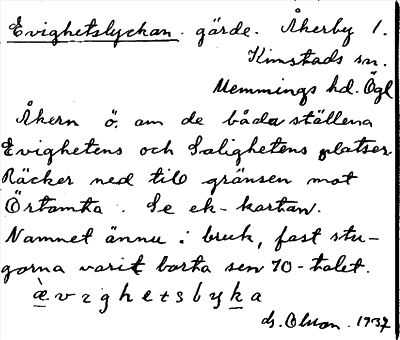 Evighetslyckan. gärde. Åkerby 1.
Kimstads sn.
Memmings hd. Ögl
Åkern ö. om de båda ställena
Evighetens och Salighetens platser
Räcker ned till gränsen mot
Örtomta. Se ek-kartan.
Namnet ännu i bruk, fast stu-
gorna varit borta sen 70-talet.
ævighetsbyka
ds. Olsson. 1937